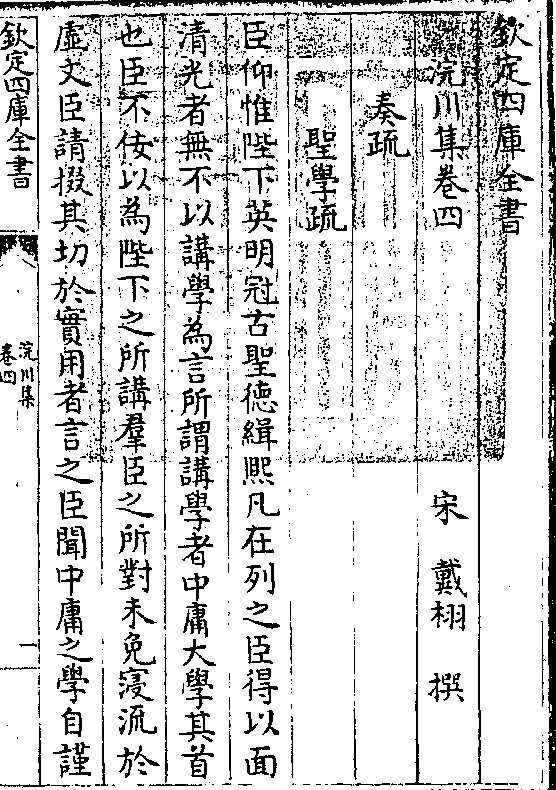 欽定四庫全書
浣川集卷四
宋 戴栩 撰
奏疏
聖學疏
臣仰惟陛下英明冠古聖德緝熙凡在列之臣得以面
清光者無不以講學為言所謂講學者中庸大學其首
也臣不佞以為陛下之所講羣臣之所對未免寖流於
虛文臣請掇其切於實用者言之臣聞中庸之學自謹
欽定四庫全書
浣川集
卷四
一